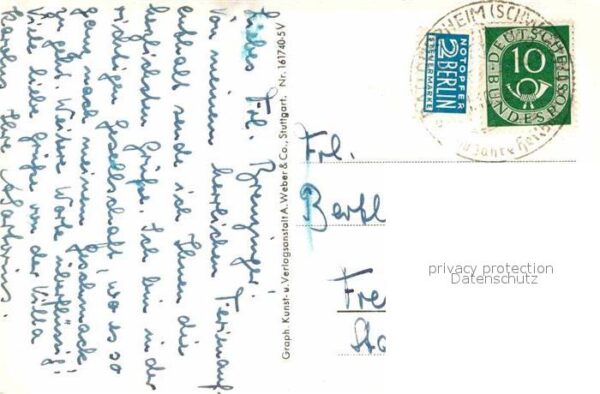 Liebes Frl. Brenzinger!
Von meinem herrlichen Ferienauf-
enthalt sende ich Ihnen die
herzlichsten Grüße. Ich bin in der
richtigen Gesellschaft, wo es so
ganz nach meinem Geschmack
zu geht. Weitere Worte überflüssig!
Viele liebe Grüße von der Villa
Ihre
Graph. Kunst- u. Verlagsanstalt A. Weber & Co., Stuttgart. Nr. 161740-5 V
NOTOPFER
2 BERLIN
STEUERMARKE
DEUTSCHE
BUNDESPOST
10
HEIM (SCHW
Frl.
Berth
Fre
Sta
privacy protection
Datenschutz